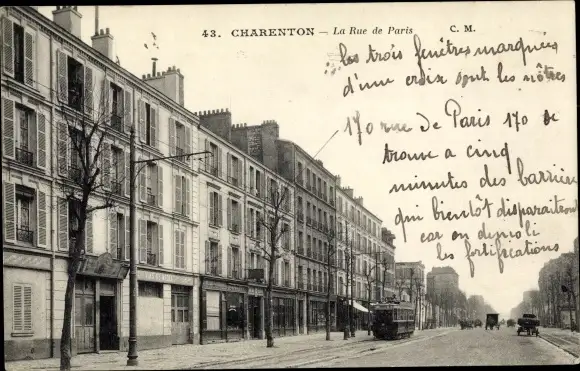 43. CHARENTON — La Rue de Paris C. M.
les trois fenêtres marquées
d'une croix sont les nôtres
170 rue de Paris 170 se
trouve à cinq
minutes des barrière
qui bientôt disparaitront
car on démoli
les fortifications